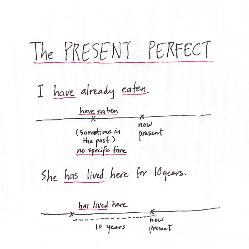 The PRESENT PERFECT
I have already eaten.
have eaten
x x
(Sometime in now
the past) present
no specific time
She has lived here for 10 years.
has lived here
x x
10 years now
present